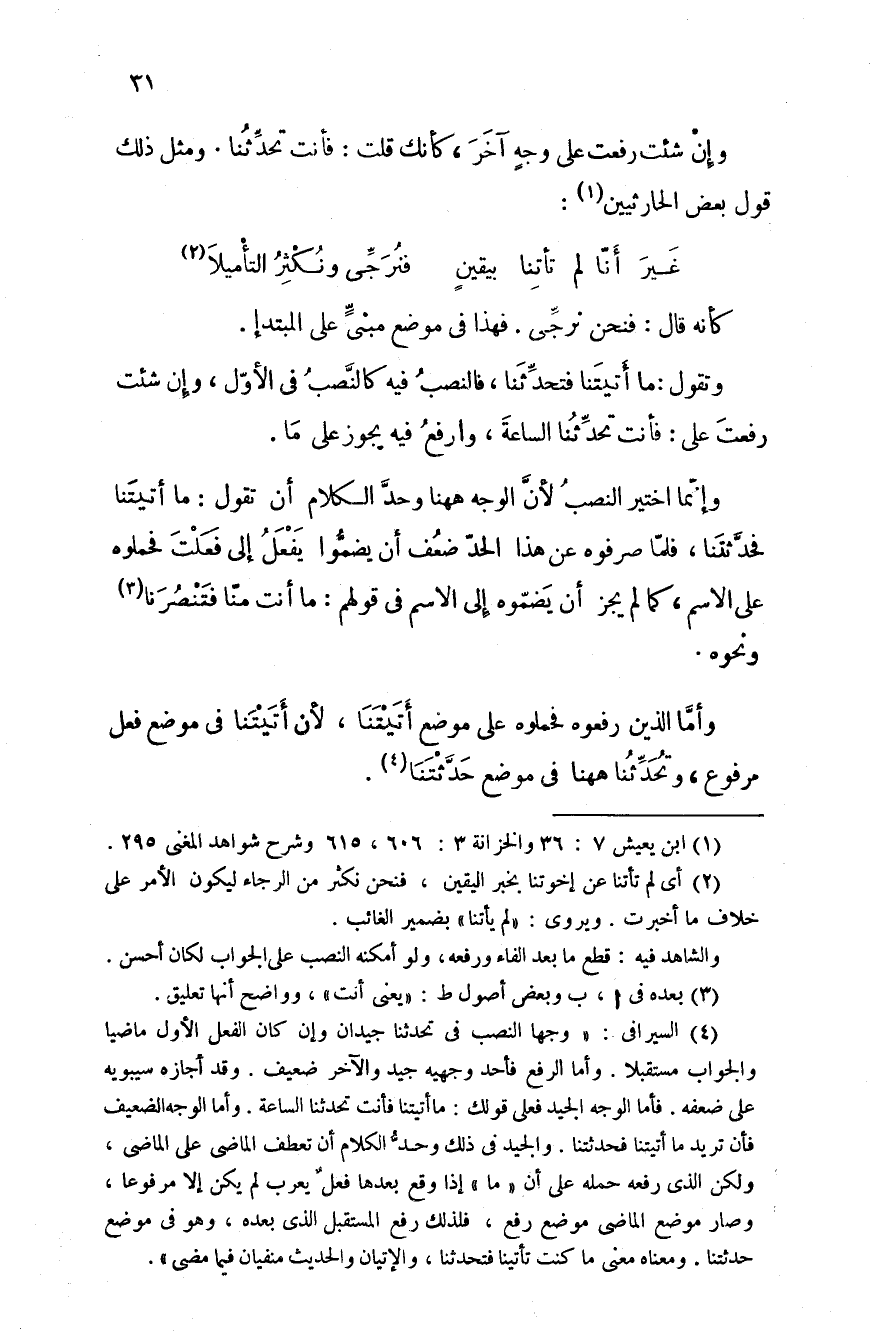 ٣١
وإنْ شئت رفعت على وجهٍ آخَرَ ، كأنك قلت : فأنت تحدِّثُنا . ومثل ذلك
قول بعض الحارثيين(١) :
غَيرَ أَنّا لم تأتِنا بيقينٍ فنُرَجِّى ونُكْثِرُ التأْميلاَ(٢)
كأنه قال : فنحن نرجِّى . فهذا فى موضع مبنىٍّ على المبتدإ .
وتقول : ما أَتيتَنا فتحدِّثَنا ، فالنصبُ فيه كالنَّصب فى الأوّل ، وإن شئت
رفعتَ على : فأنت تحدِّثُنا الساعةَ ، وارفعُ فيه يجوز على مَا .
وإنّما اختير النصبُ لأنَّ الوجه ههنا وحدَّ الكلام أن تقول : ما أتيتَنا
فحدَّثتَنا ، فلمّا صرفوه عن هذا الحدّ ضعُف أن يضمُّوا يَفْعَلُ إلى فَعَلْتَ فحملوه
على الاسم ، كما لم يجز أن يَضمّوه إلى الاسم فى قولهم : ما أنت منّا فَتَنْصُرَنا(٣)
ونحوه .
وأمَّا الذين رفعوه فحملوه على موضع أَتَيْتَنَا ، لأن أَتَيْتَنا فى موضع فعل
مرفوع ، وتُحَدِّثُنا ههنا فى موضع حَدَّثْتَنَا(٤) .
(١) ابن يعيش ٧ : ٣٦ والخزانة ٣ : ٦٠٦ ، ٦١٥ وشرح شواهد المغنى ٢٩٥ .
(٢) أى لم تأتنا عن إخوتنا بخبر اليقين ، فنحن نكثر من الرجاء ليكون الأمر على
خلاف ما أخبرت . ويروى : «لم يأتنا» بضمير الغائب .
والشاهد فيه : قطع ما بعد الفاء ورفعه، ولو أمكنه النصب على الجواب لكان أحسن .
(٣) بعده فى ا ، ب وبعض أصول ط : «يعنى أنت» ، وواضح أنها تعليق .
(٤) السيرافى : « وجها النصب فى تحدثنا جيدان وإن كان الفعل الأول ماضيا
والجواب مستقبلا . وأما الرفع فأحد وجهيه جيد والآخر ضعيف . وقد أجازه سيبويه
على ضعفه . فأما الوجه الجيد فعلى قولك : ماأتيتنا فأنت تحدثنا الساعة . وأما الوجه الضعيف
فأن تريد ما أتيتنا فحدثتنا . والجيد فى ذلك وحدُّ الكلام أن تعطف الماضى على الماضى ،
ولكن الذى رفعه حمله على أن « ما » إذا وقع بعدها فعلٌ يعرب لم يكن إلا مرفوعا ،
وصار موضع الماضى موضع رفع ، فلذلك رفع المستقبل الذى بعده ، وهو فى موضع
حدثتنا . ومعناه معنى ما كنت تأتينا فتحدثنا ، والإتيان والحديث منفيان فيما مضى» .